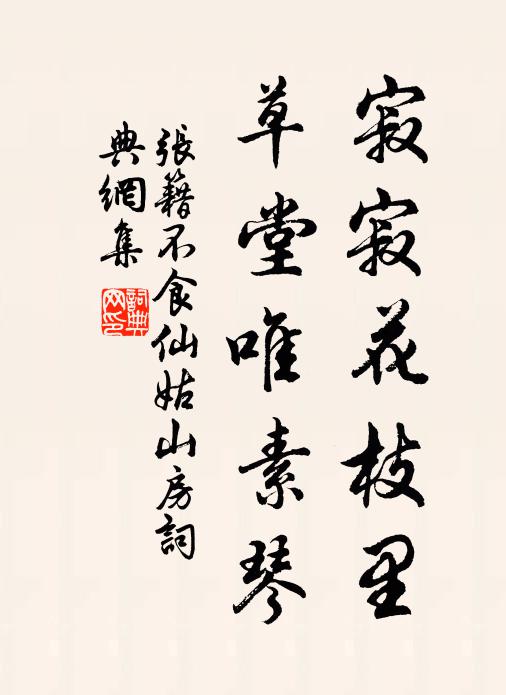 寂寂花枝里
草堂唯素琴
張籍不食仙姑山房詞
典網集
詞典
网印